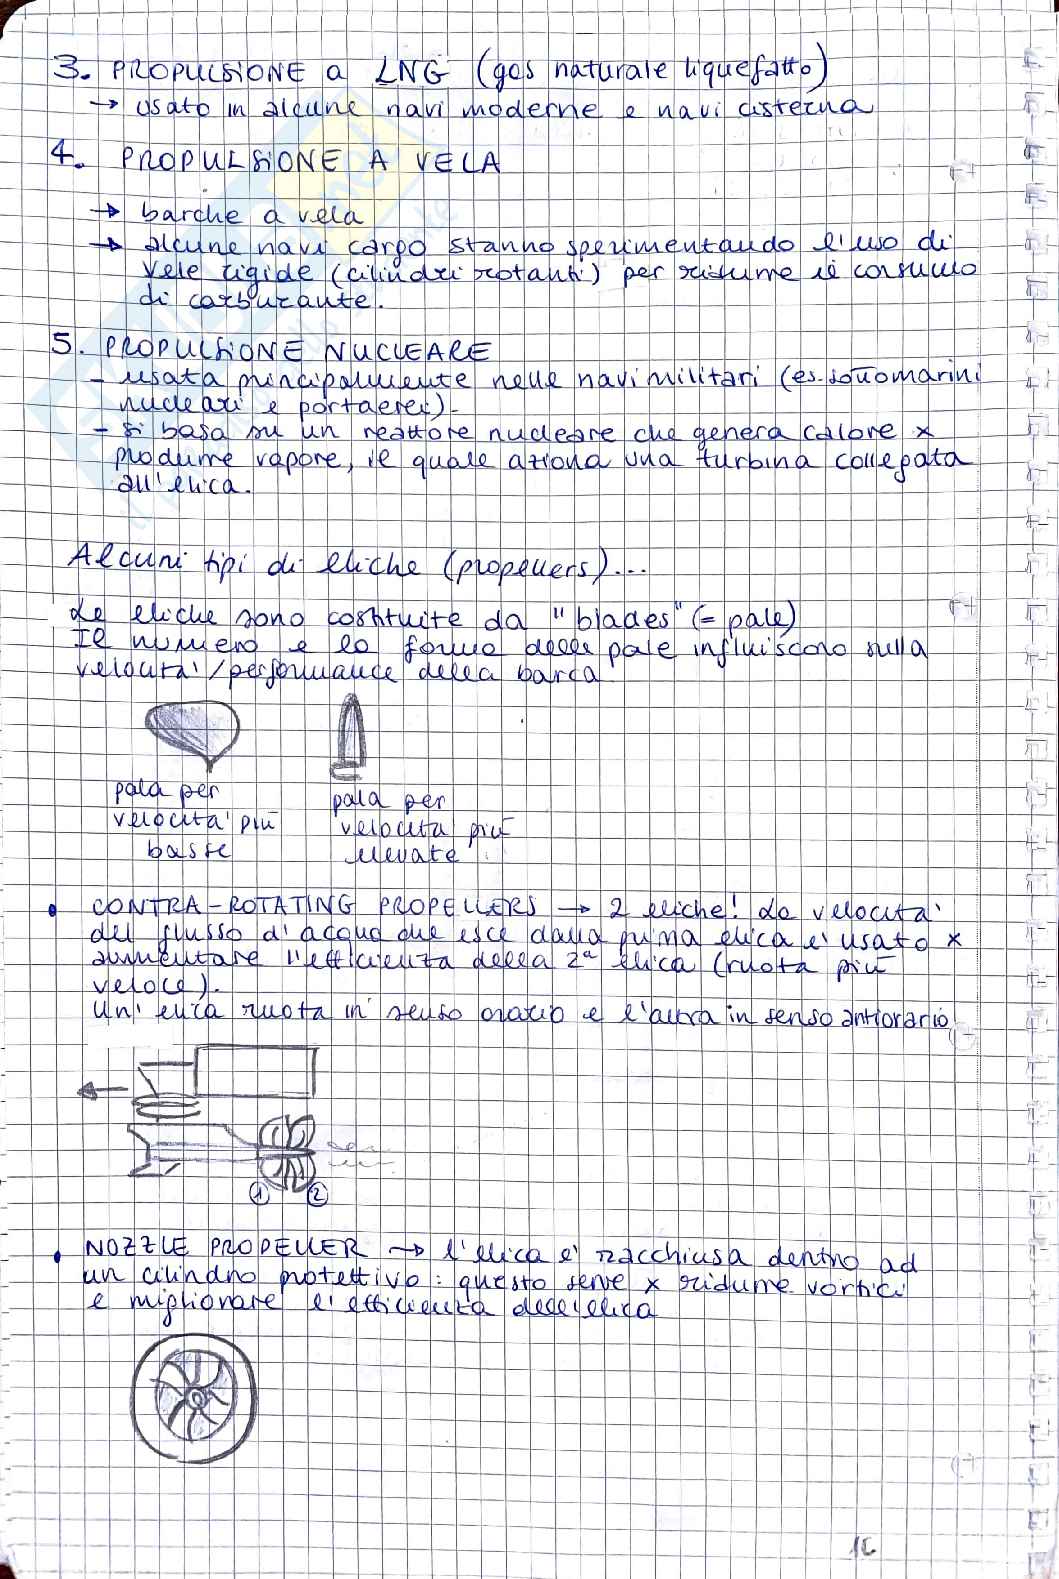 3. PROPULSIONE a LNG (gas naturale liquefatto)
→ usato in alcune navi moderne e navi cisterna
4. PROPULSIONE A VELA
→ barche a vela
→ alcune navi cargo stanno sperimentando l'uso di
vele rigide (cilindri rotanti) per ridurre il consumo
di carburante.
5. PROPULSIONE NUCLEARE
- usata principalmente nelle navi militari (es. sottomarini
nucleari e portaerei).
- si basa su un reattore nucleare che genera calore x
produrre vapore, il quale aziona una turbina collegata
all'elica.
Alcuni tipi di eliche (propellers)...
Le eliche sono costituite da "blades" (= pale)
Il numero e la forma delle pale influiscono sulla
velocità/performance della barca
pala per
velocità più
basse
pala per
velocità più
elevate
• CONTRA-ROTATING PROPELLERS → 2 eliche! La velocità
del flusso d'acqua che esce dalla prima elica è usato x
aumentare l'efficienza della 2ª elica (ruota più
veloce).
Un'elica ruota in senso orario e l'altra in senso antiorario
1 2
• NOZZLE PROPELLER → l'elica è racchiusa dentro ad
un cilindro protettivo: questo serve x ridurre vortici
e migliorare l'efficienza dell'elica